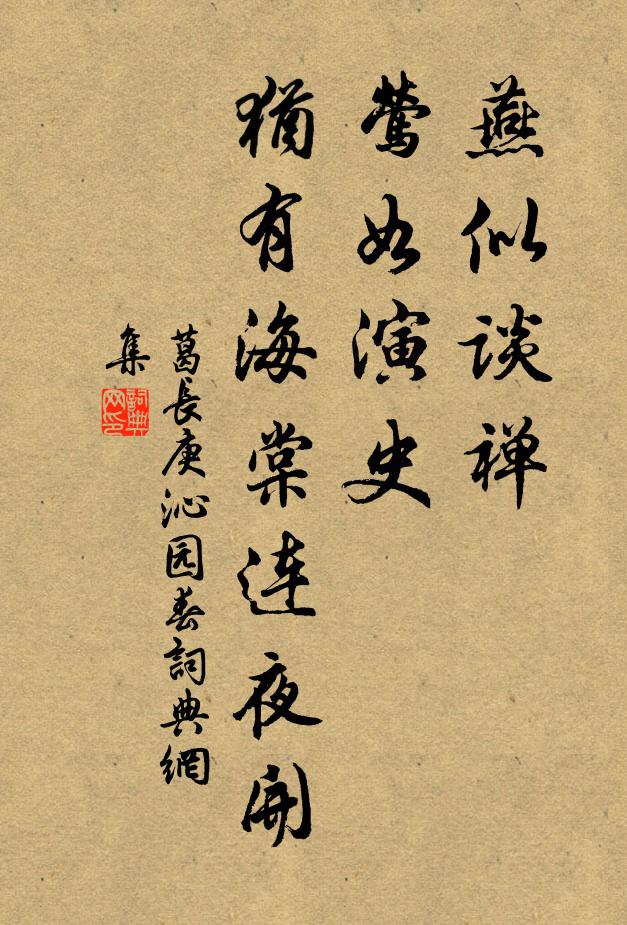 燕似谈禅
莺如演史
猶有海棠連夜開
葛長庚沁园春詞典網
集
詞典网印